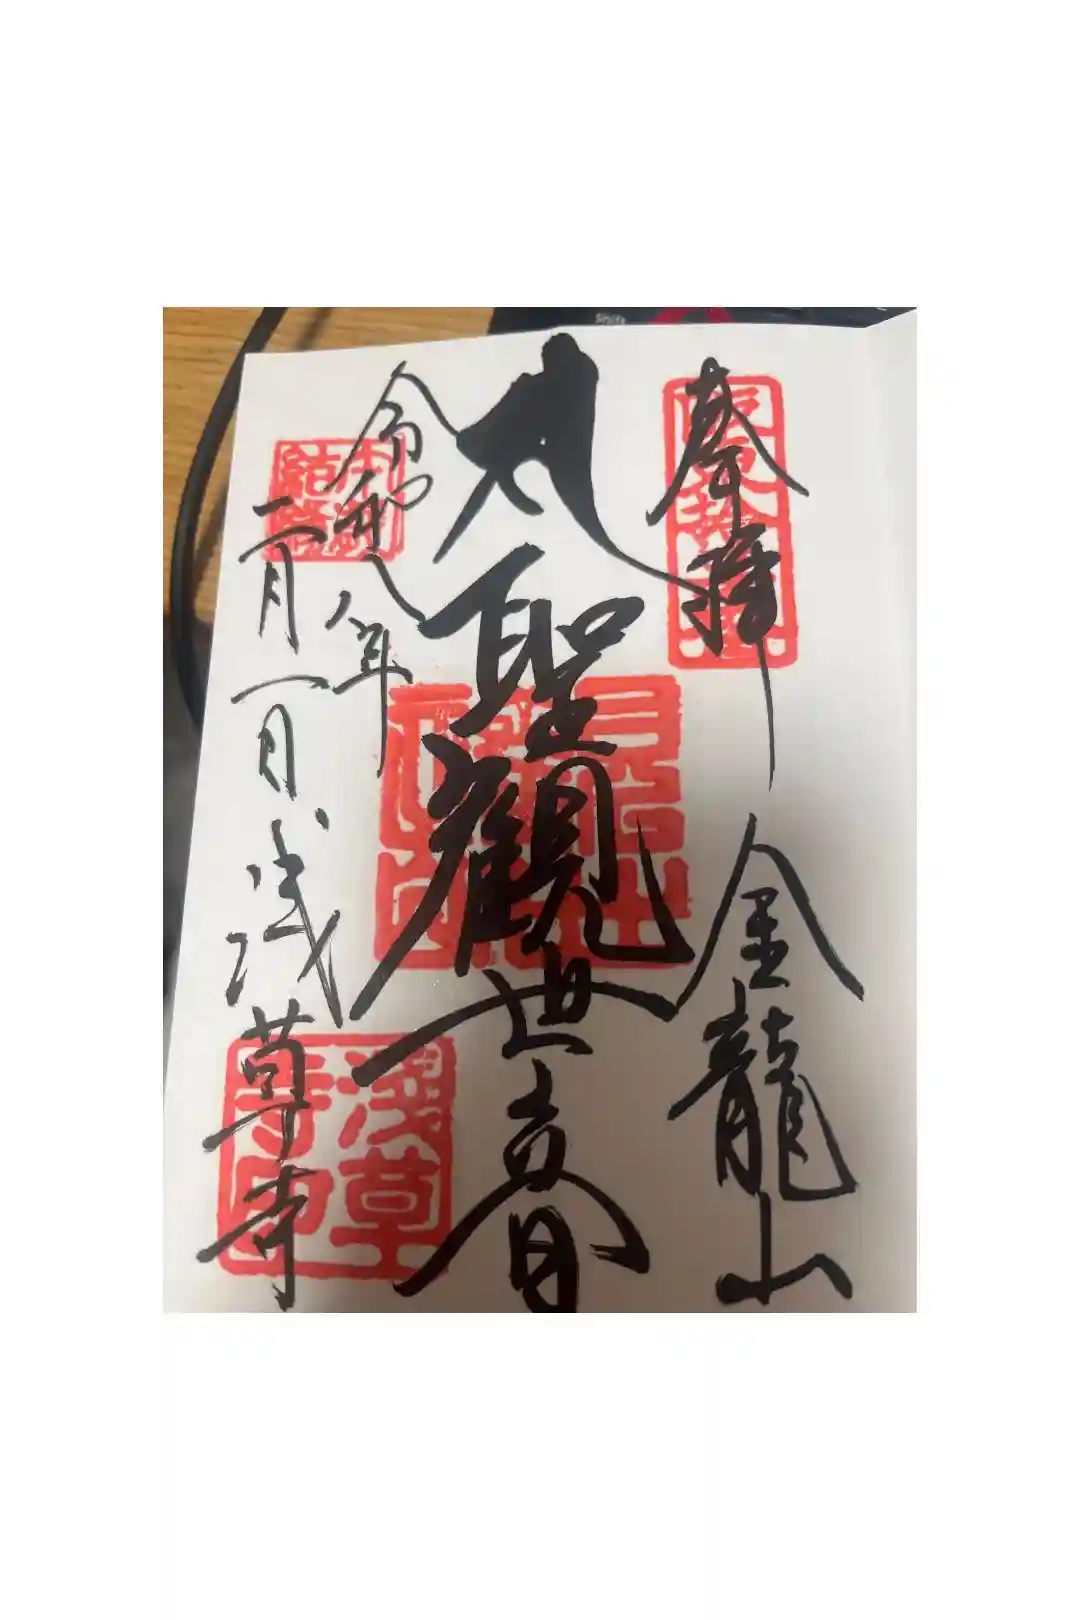 奉拝
金龍山
聖観世音
令和八年
二月一日
浅草寺
浅草
寺印
Shift